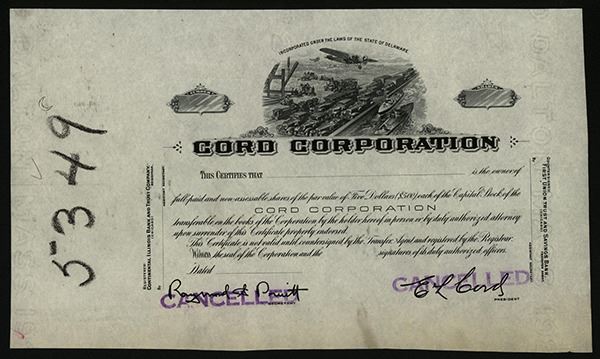 INCORPORATED UNDER THE LAWS OF THE STATE OF DELAWARE.
NUMBER
SHARES
CORD CORPORATION
THIS CERTIFIES THAT is the owner of
full paid and non-assessable shares of the par value of Five Dollars ($5.00) each of the Capital Stock of the
CORD CORPORATION
transferable on the books of the Corporation by the holder hereof in person or by duly authorized attorney
upon surrender of this Certificate properly endorsed.
This Certificate is not valid until countersigned by the Transfer Agent and registered by the Registrar.
WITNESS the seal of the Corporation and the signatures of its duly authorized officers.
Dated
Raymond S Pruitt
SECRETARY
CANCELLED
E L Cord
PRESIDENT
CANCELLED
5349
REGISTERED:
CONTINENTAL ILLINOIS BANK AND TRUST COMPANY,
By
COUNTERSIGNED:
FIRST UNION TRUST AND SAVINGS BANK,
By